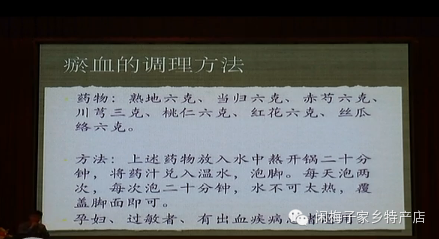 瘀血的调理方法
药物：熟地六克、当归六克、赤芍六克、
川芎三克、桃仁六克、红花六克、丝瓜
络六克。
方法：上述药物放入水中熬开锅二十分
钟，将药汁兑入温水，泡脚。每天泡两
次，每次泡二十分钟，水不可太热，覆
盖脚面即可。
孕妇、过敏者、有出血疾病
闲梅子家乡特产店